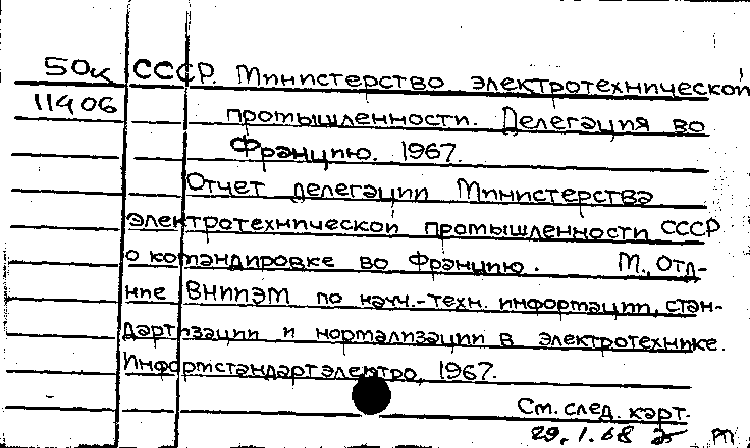 50к СССР. Министерство электротехнической
11406 промышленности. Делегация во
Францию. 1967.
Отчет делегации Министерства
электротехнической промышленности СССР
о командировке во Францию. М., Отд-
ние ВНИИЭМ по науч.-техн. информации, стан-
дартизации и нормализации в электротехнике.
Информстандартэлектро, 1967.
См. след. карт.
29.1.68